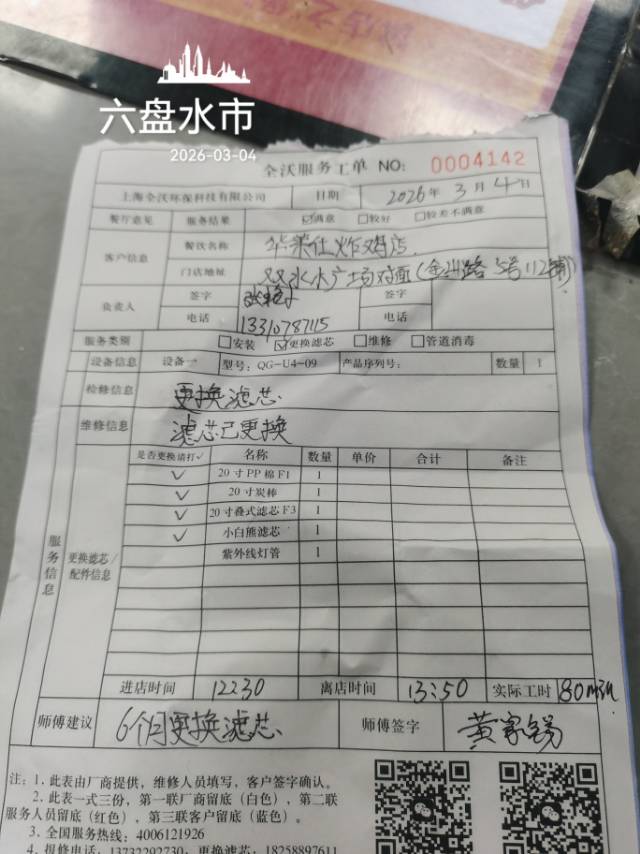 六盘水市
2026-03-04
全沃服务工单 NO: 0004142
上海全沃环保科技有限公司 日期 2026年 3月 4日
餐厅意见 服务结果 ☑满意 □较好 □较差不满意
客户信息 餐饮名称 华莱仕炸鸡店
门店地址 双水水广场对面(金洲路5号112铺)
负责人 签字 签字
电话 13310787115 电话
服务类别 □安装 ☑更换滤芯 □维修 □管道消毒
设备信息 设备一 型号: QG-U4-09 产品序列号: 数量 1
检修信息 更换滤芯.
维修信息 滤芯已更换
服务信息 更换滤芯/配件信息
是否更换请打✓ 名称 数量 单价 合计 备注
✓ 20寸PP棉F1 1
✓ 20寸炭棒 1
✓ 20寸叠式滤芯F3 1
✓ 小白熊滤芯 1
紫外线灯管 1
进店时间 12:30 离店时间 13:50 实际工时 80min
师傅建议 6个月更换滤芯 师傅签字 黄家锡
注: 1、此表由厂商提供，维修人员填写，客户签字确认。
2、此表一式三份，第一联厂商留底（白色），第二联
服务人员留底（红色），第三联客户留底（蓝色）。
3、全国服务热线: 4006121926
4、报修电话: 13732292730, 更换滤芯: 18258897611